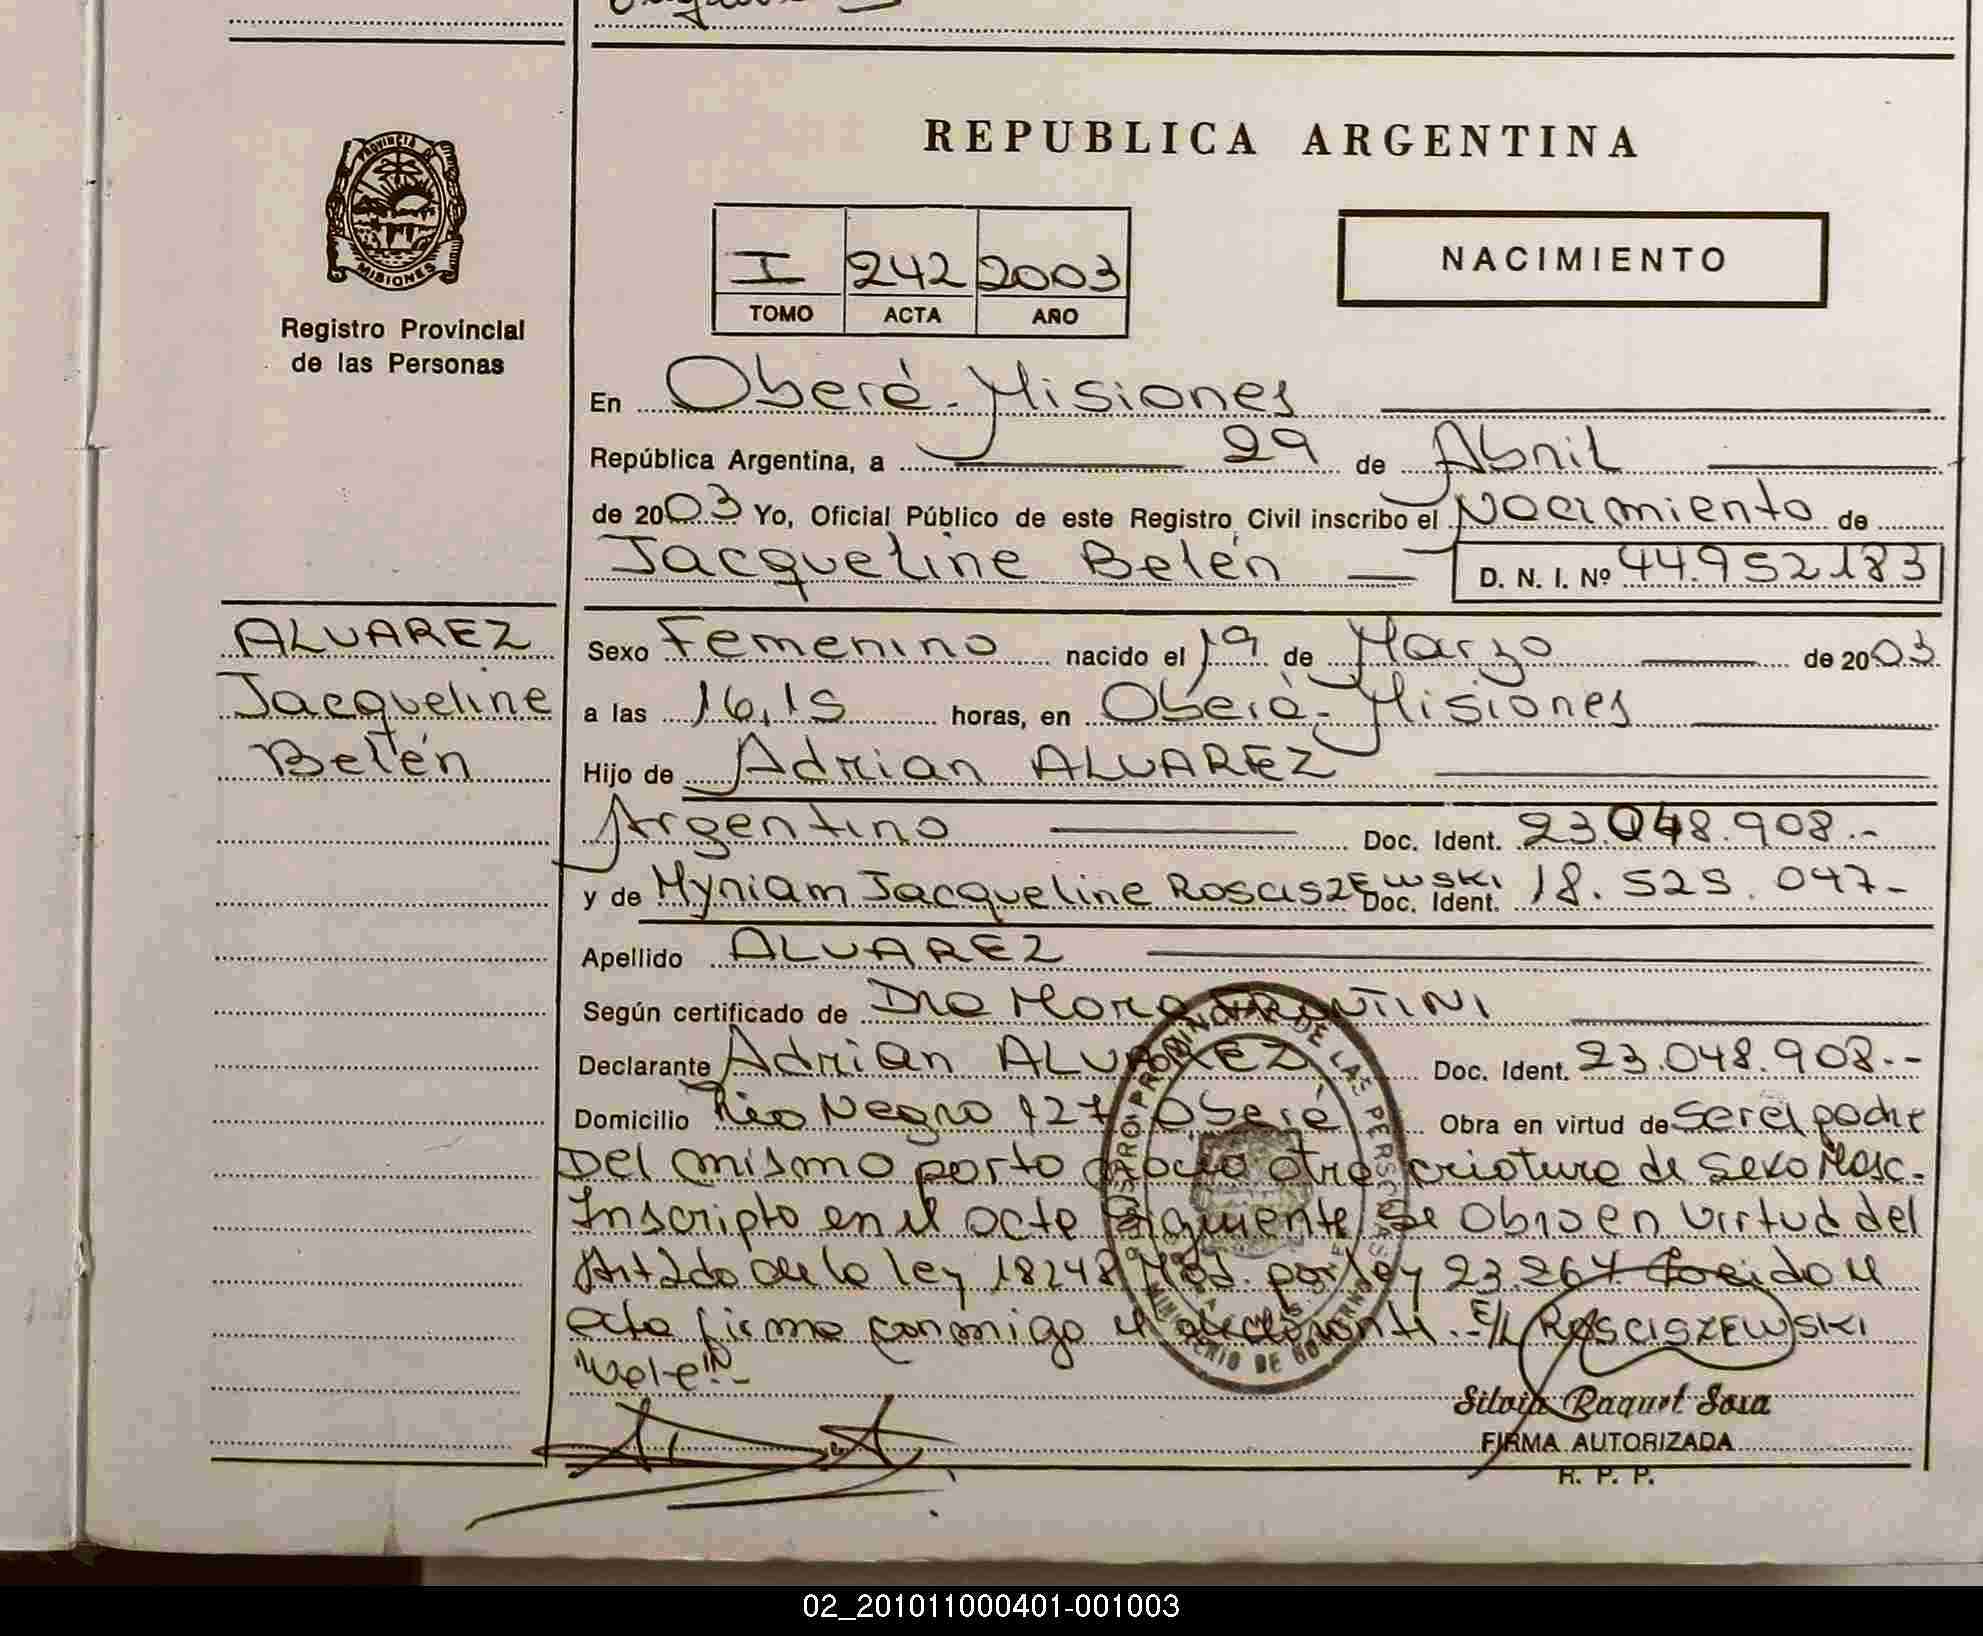 PROVINCIA DE
MISIONES
Registro Provincial
de las Personas
ALVAREZ
Jacqueline
Belén
REPUBLICA ARGENTINA
I 242 2003
TOMO ACTA AÑO
NACIMIENTO
En Oberá - Misiones
República Argentina, a 29 de Abril
de 2003 Yo, Oficial Público de este Registro Civil inscribo el Nacimiento de
Jacqueline Belén D. N. I. Nº 44.952.183
Sexo Femenino nacido el 19 de Marzo de 2003
a las 16,15 horas, en Oberá - Misiones
Hijo de Adrian ALVAREZ
Argentino Doc. Ident. 23.048.908.-
y de Myriam Jacqueline ROSCISZEWSKI Doc. Ident. 18.525.047-
Apellido ALVAREZ
Según certificado de Dra Mora FRONTINI
Declarante Adrian ALVAREZ Doc. Ident. 23.048.908.-
Domicilio Rio Negro 127 Oberá Obra en virtud de ser el padre
Del mismo parto nació otra criatura de sexo Masc.
Inscripto en el acta siguiente. Se Obra en virtud del
Art 2do de la ley 18248 Mod. por ley 23.264. Leida el
acta firma conmigo el declarante. - E/L ROSCISZEWSKI
"Vale" -
Silvia Raquel Sosa
FIRMA AUTORIZADA
R. P. P.
02_201011000401-001003